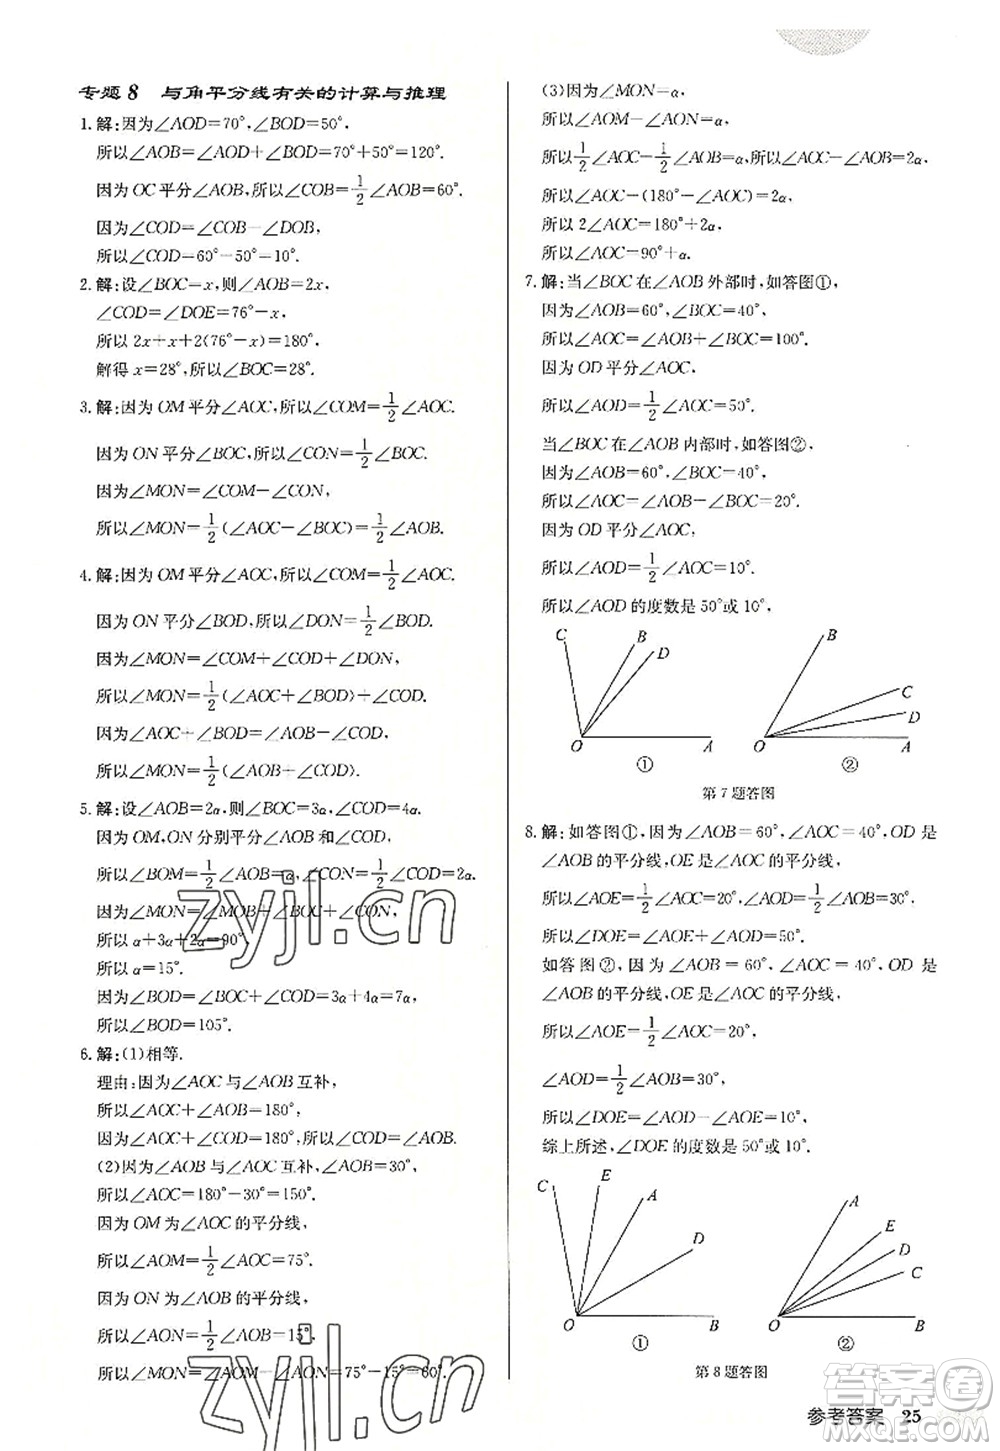 专题8 与角平分线有关的计算与推理
1.解:因为∠AOD=70°,∠BOD=50°.
所以∠AOB=∠AOD+∠BOD=70°+50°=120°.
因为OC平分∠AOB,所以∠COB=1/2∠AOB=60°.
因为∠COD=∠COB-∠DOB,
所以∠COD=60°-50°=10°.
2.解:设∠BOC=x,则∠AOB=2x,
∠COD=∠DOE=76°-x,
所以2x+x+2(76°-x)=180°.
解得x=28°,所以∠BOC=28°.
3.解:因为OM平分∠AOC,所以∠COM=1/2∠AOC.
因为ON平分∠BOC,所以∠CON=1/2∠BOC.
因为∠MON=∠COM-∠CON,
所以∠MON=1/2(∠AOC-∠BOC)=1/2∠AOB.
4.解:因为OM平分∠AOC,所以∠COM=1/2∠AOC.
因为ON平分∠BOD,所以∠DON=1/2∠BOD.
因为∠MON=∠COM+∠COD+∠DON,
所以∠MON=1/2(∠AOC+∠BOD)+∠COD.
因为∠AOC+∠BOD=∠AOB-∠COD,
所以∠MON=1/2(∠AOB+∠COD).
5.解:设∠AOB=2α,则∠BOC=3α,∠COD=4α.
因为OM,ON分别平分∠AOB和∠COD,
所以∠BOM=1/2∠AOB=α,∠CON=1/2∠COD=2α.
因为∠MON=∠MOB+∠BOC+∠CON,
所以α+3α+2α=90°.
所以α=15°.
因为∠BOD=∠BOC+∠COD=3α+4α=7α,
所以∠BOD=105°.
6.解:(1)相等.
理由:因为∠AOC与∠AOB互补,
所以∠AOC+∠AOB=180°,
因为∠AOC+∠COD=180°,所以∠COD=∠AOB.
(2)因为∠AOB与∠AOC互补,∠AOB=30°,
所以∠AOC=180°-30°=150°.
因为OM为∠AOC的平分线,
所以∠AOM=1/2∠AOC=75°.
因为ON为∠AOB的平分线,
所以∠AON=1/2∠AOB=15°.
所以∠MON=∠AOM-∠AON=75°-15°=60°.
(3)因为∠MON=α,
所以∠AOM-∠AON=α,
所以1/2∠AOC-1/2∠AOB=α,所以∠AOC-∠AOB=2α,
所以∠AOC-(180°-∠AOC)=2α,
所以2∠AOC=180°+2α,
所以∠AOC=90°+α.
7.解:当∠BOC在∠AOB外部时,如答图①,
因为∠AOB=60°,∠BOC=40°,
所以∠AOC=∠AOB+∠BOC=100°.
因为OD平分∠AOC,
所以∠AOD=1/2∠AOC=50°.
当∠BOC在∠AOB内部时,如答图②,
因为∠AOB=60°,∠BOC=40°,
所以∠AOC=∠AOB-∠BOC=20°.
因为OD平分∠AOC,
所以∠AOD=1/2∠AOC=10°.
所以∠AOD的度数是50°或10°,
C B D O A
①
B C D O A
②
第7题答图
8.解:如答图①,因为∠AOB=60°,∠AOC=40°,OD是
∠AOB的平分线,OE是∠AOC的平分线,
所以∠AOE=1/2∠AOC=20°,∠AOD=1/2∠AOB=30°,
所以∠DOE=∠AOE+∠AOD=50°.
如答图②,因为∠AOB=60°,∠AOC=40°,OD是
∠AOB的平分线,OE是∠AOC的平分线,
所以∠AOE=1/2∠AOC=20°,
∠AOD=1/2∠AOB=30°,
所以∠DOE=∠AOD-∠AOE=10°.
综上所述,∠DOE的度数是50°或10°.
C E A D O B
①
A E D C O B
②
第8题答图
参考答案 25
zyjl.cn
zyjl.cn
答案圈
MXQE.COM